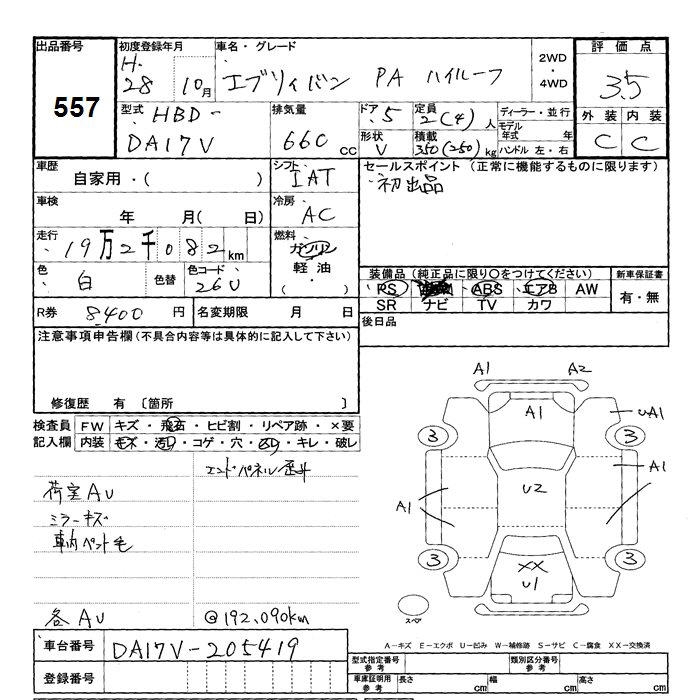 出品番号
557
初度登録年月
H.
28 10月
車名・グレード
エブリイバン PA ハイルーフ
2WD
・
4WD
評価点
3.5
外装 内装
C C
型式
HBD-
DA17V
排気量
660 cc
ドア 5
形状
V
定員
2(4) 人
積載
350(250) kg
ディーラー・並行
モデル
年式 年
ハンドル 左・右
車歴
自家用・( )
シフト
IAT
セールスポイント (正常に機能するものに限ります)
初出品
車検
年 月( 日)
冷房
AC
走行
19万2千082km
燃料
ガソリン
軽油
( )
色
白
色替
色コード
26U
装備品 (純正品に限り○をつけてください)
PS ABS エアB AW
SR ナビ TV カワ
新車保証書
有・無
R券 8,400 円
名変期限 月 日
後日品
注意事項申告欄 (不具合内容等は具体的に記入して下さい)
修復歴 有 〔箇所 〕
検査員 FW キズ・飛石・ヒビ割・リペア跡・×要
記入欄 内装 キズ・汚レ・コゲ・穴・ キレ・破レ
エンドパネル歪ミ
荷室AU
ミラーキズ
車内ペット毛
各AU @192,090km
A1 A2
A1
UA1
3 3
A1
U2
A1
3 3
XX
U1
スペア
A−キズ E−エクボ U−凹み W−補修跡 S−サビ C−腐食 XX−交換済
車台番号 DA17V-205419
登録番号
型式指定番号
参考
類別区分番号
参考
車庫証明用
参考
長さ cm 幅 cm 高さ cm